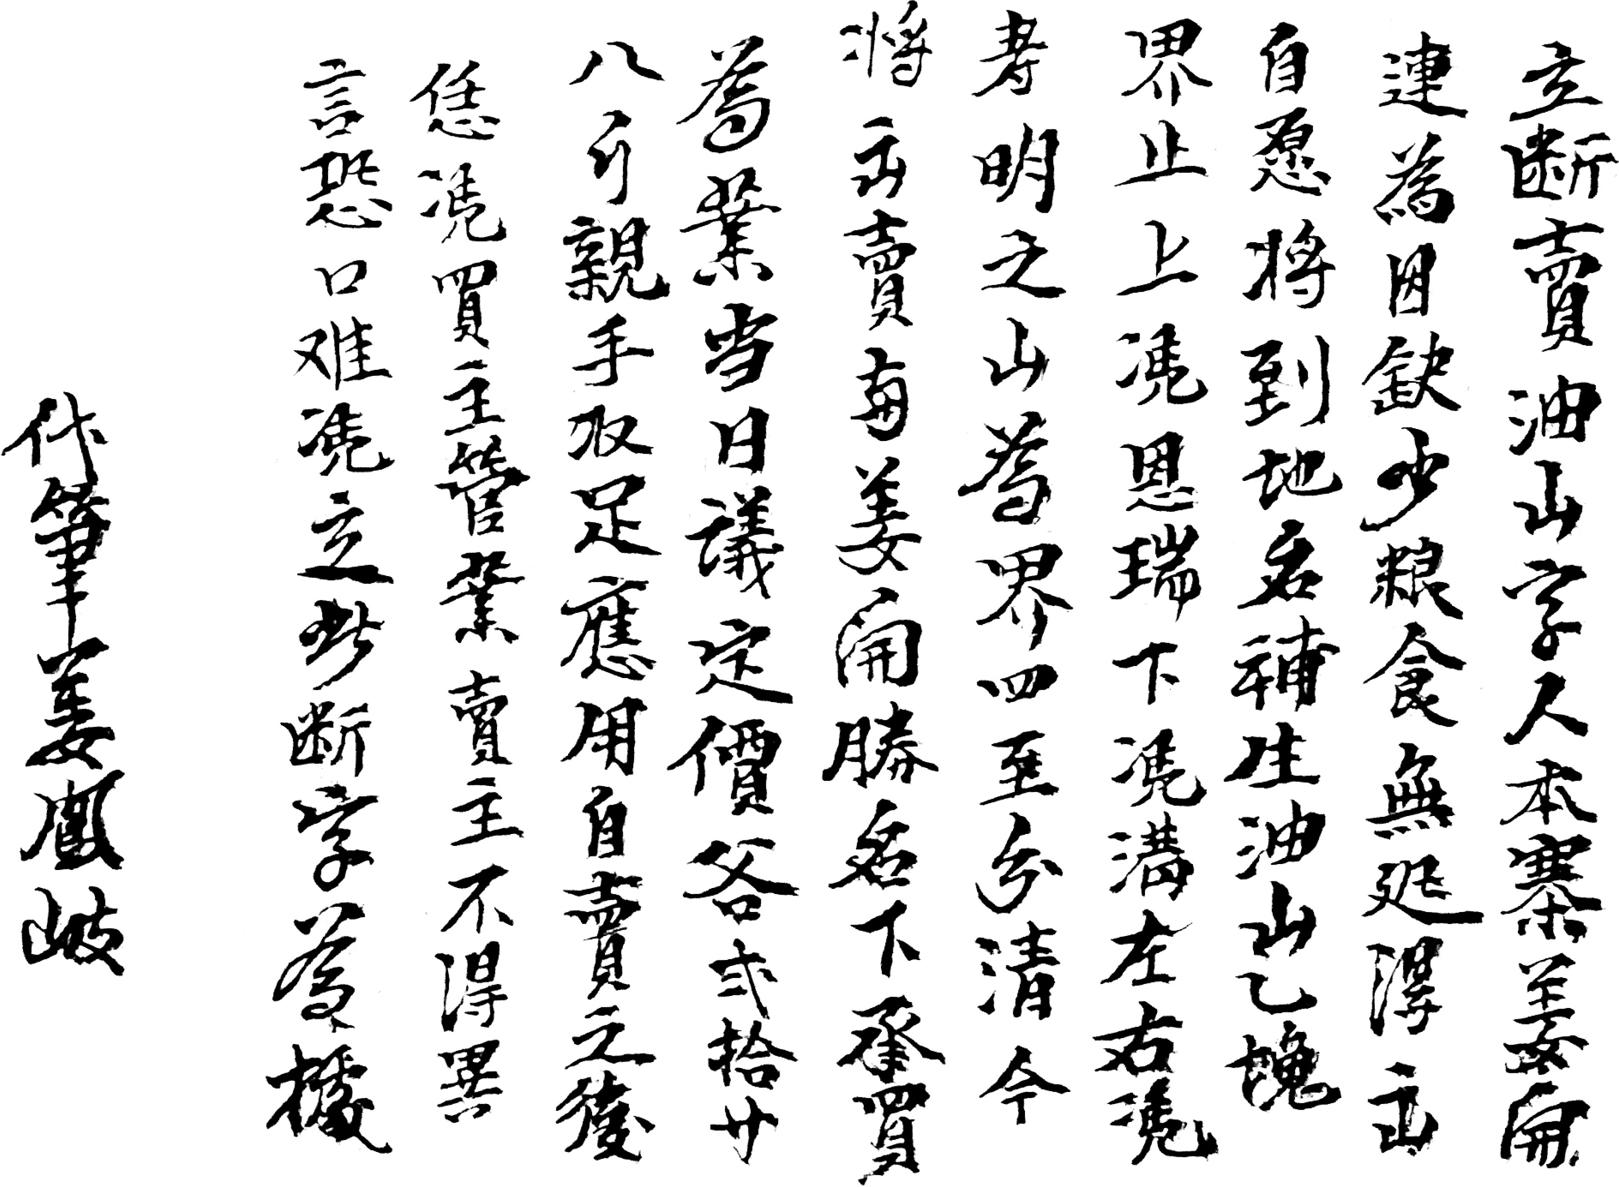 立断賣油山字人本寨姜開
連為因缺少粮食無処得出
自愿将到地名補生油山乙塊
界止上凴恩瑞下凴溝左右凴
寿明之山為界四至分清今
将出賣与姜開勝名下承買
為業当日議定價谷弍拾廿
八斤親手収足應用自賣之後
恁凴買主管業賣主不得異
言恐口难凴立此断字為據
代筆姜鳳岐